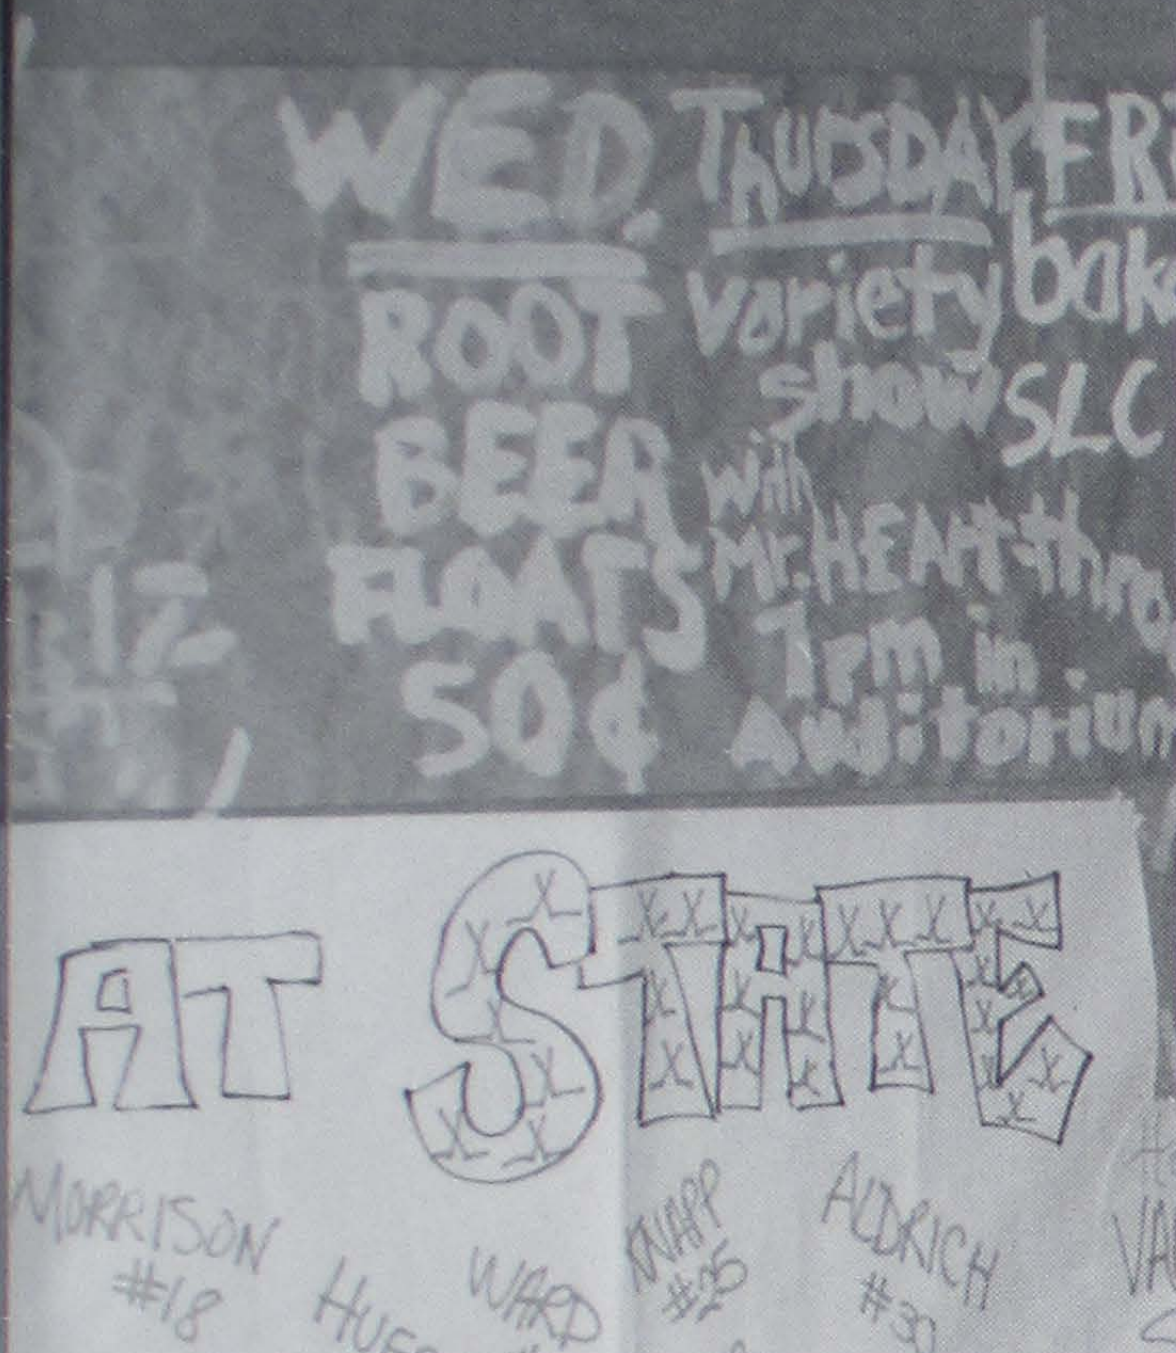 WED.
ROOT
BEER
FLOATS
50¢
THURSDAY
variety
show
with
Mr. HEARt-thro
7pm in
Auditorium
FRI
bak
SLC
12
AT STATE
MORRISON
#18
WARD
KNAPP
#25
ALDRICH
#30
VA